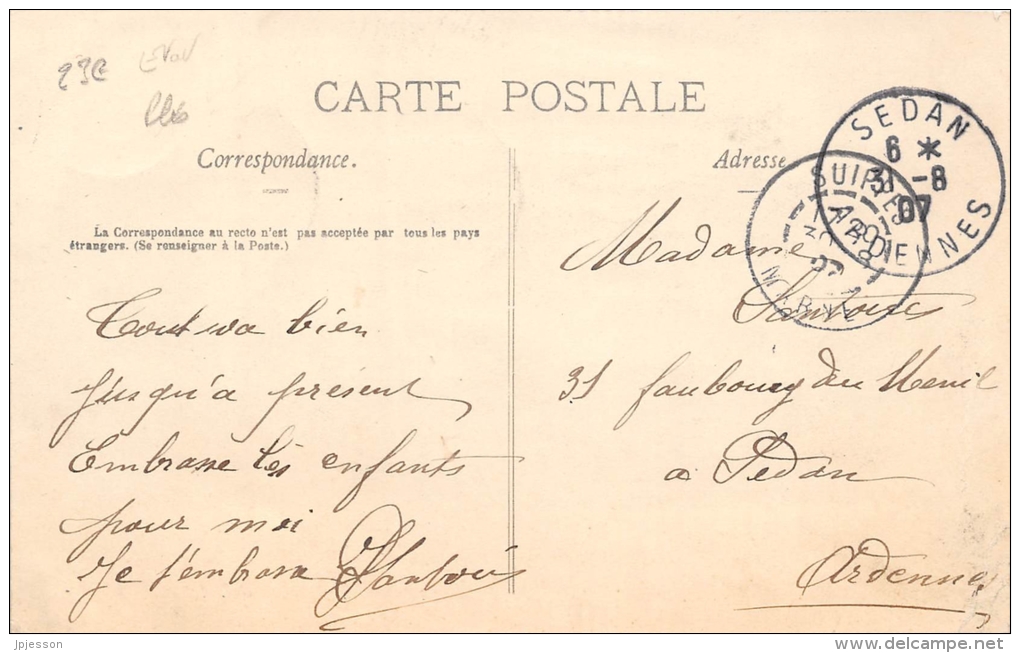 CARTE POSTALE
Correspondance.
Adresse
La Correspondance au recto n'est pas acceptée par tous les pays
étrangers. (Se renseigner à la Poste.)
SEDAN
6 *
31 -8
07
ARDENNES
SUIPPES
MARNE
Tout va bien
Jusqu'a présent
Embrasse les enfants
pour moi
Je t'embrasse
Madame
31 faubourg du Menil
a Sedan
Ardennes
jpjesson
www.delcampe.net